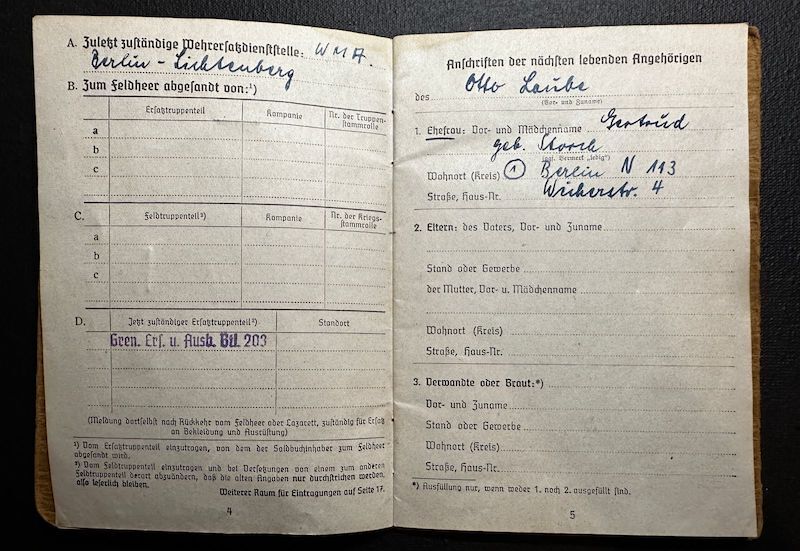 A. Zuletzt zuständige Wehrersatzdienststelle: W M A.
Berlin - Lichtenberg
B. Zum Feldheer abgesandt von:¹)
Ersatztruppenteil Kompanie Nr. der Truppen-
stammrolle
a
b
c
C. Feldtruppenteil²) Kompanie Nr. der Kriegs-
stammrolle
a
b
c
D. Jetzt zuständiger Ersatztruppenteil²) Standort
Gren. Ers. u. Ausb. Btl. 203
(Meldung dortselbst nach Rückkehr vom Feldheer oder Lazarett, zuständig für Ersatz
an Bekleidung und Ausrüstung)
¹) Vom Ersatztruppenteil einzutragen, von dem der Soldbuchinhaber zum Feldheer
abgesandt wird.
²) Vom Feldtruppenteil einzutragen und bei Versetzungen von einem zum anderen
Feldtruppenteil derart abzuändern, daß die alten Angaben nur durchstrichen werden,
also leserlich bleiben.
Weiterer Raum für Eintragungen auf Seite 17.
4
Anschriften der nächsten lebenden Angehörigen
des Otto Laube
(Vor- und Zuname)
1. Ehefrau: Vor- und Mädchenname Gertrud
geb. Storch
(ggf. Vermerk „ledig")
Wohnort (Kreis) 1 Berlin N 113
Straße, Haus-Nr. Wicherstr. 4
2. Eltern: des Vaters, Vor- und Zuname
Stand oder Gewerbe
der Mutter, Vor- u. Mädchenname
Wohnort (Kreis)
Straße, Haus-Nr.
3. Verwandte oder Braut:*)
Vor- und Zuname
Stand oder Gewerbe
Wohnort (Kreis)
Straße, Haus-Nr.
*) Ausfüllung nur, wenn weder 1. noch 2. ausgefüllt sind.
5